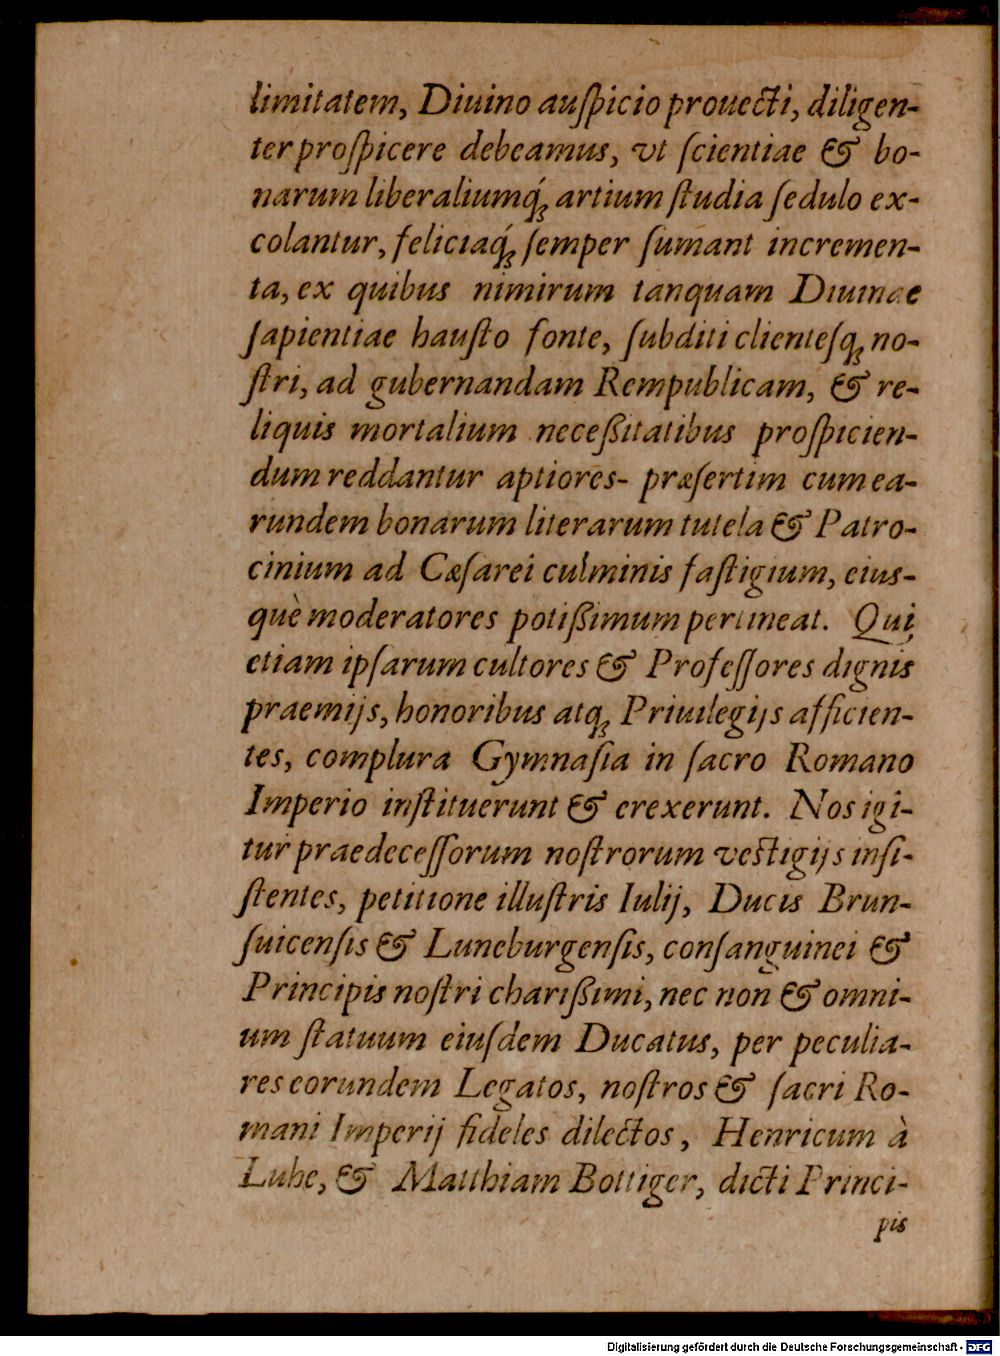 limitatem, Diuino auſpicio prouecti, diligen-
ter proſpicere debeamus, vt ſcientiae & bo-
narum liberaliumq́ꝫ artium ſtudia ſedulo ex-
colantur, feliciaq́ꝫ ſemper ſumant incremen-
ta, ex quibus nimirum tanquam Diuinae
ſapientiae hauſto fonte, ſubditi clienteſqꝫ no-
ſtri, ad gubernandam Rempublicam, & re-
liquis mortalium neceßitatibus proſpicien-
dum reddantur aptiores- præſertim cum ea-
rundem bonarum literarum tutela & Patro-
cinium ad Cæſarei culminis faſtigium, eius-
què moderatores potißimum pertineat. Qui
etiam ipſarum cultores & Profeſſores dignis
praemijs, honoribus atqꝫ Priuilegijs afficien-
tes, complura Gymnaſia in ſacro Romano
Imperio inſtituerunt & erexerunt. Nos igi-
tur praedeceſſorum noſtrorum veſtigijs inſi-
ſtentes, petitione illuſtris Iulij, Ducis Brun-
ſuicenſis & Luneburgenſis, conſanguinei &
Principis noſtri charißimi, nec non & omni-
um ſtatuum eiuſdem Ducatus, per peculia-
res eorundem Legatos, noſtros & ſacri Ro-
mani Imperij fideles dilectos, Henricum à
Luhe, & Matthiam Bottiger, dicti Princi-
pis
Digitalisierung gefördert durch die Deutsche Forschungsgemeinschaft - DFG